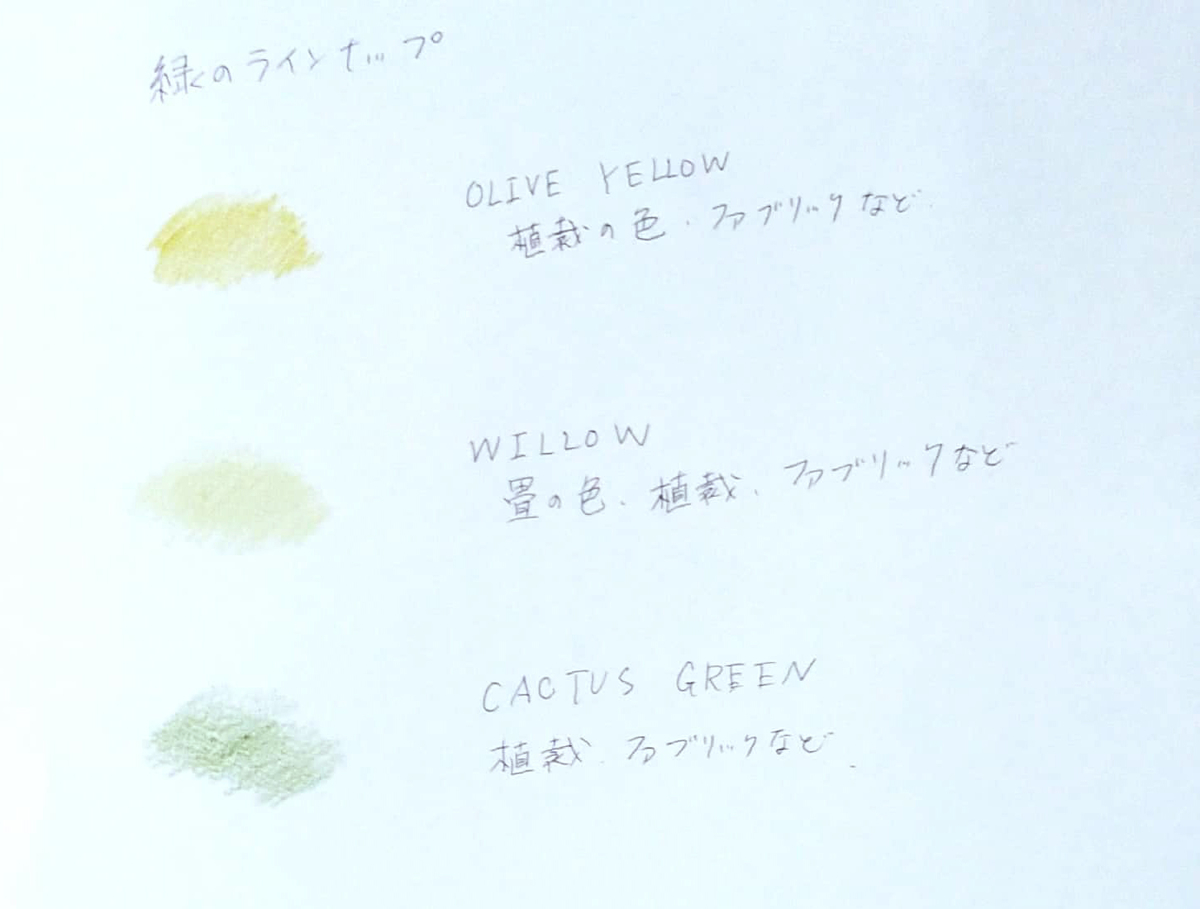 緑のラインナップ
OLIVE YELLOW
植栽の色、ファブリックなど
WILLOW
畳の色、植栽、ファブリックなど
CACTUS GREEN
植栽、ファブリックなど